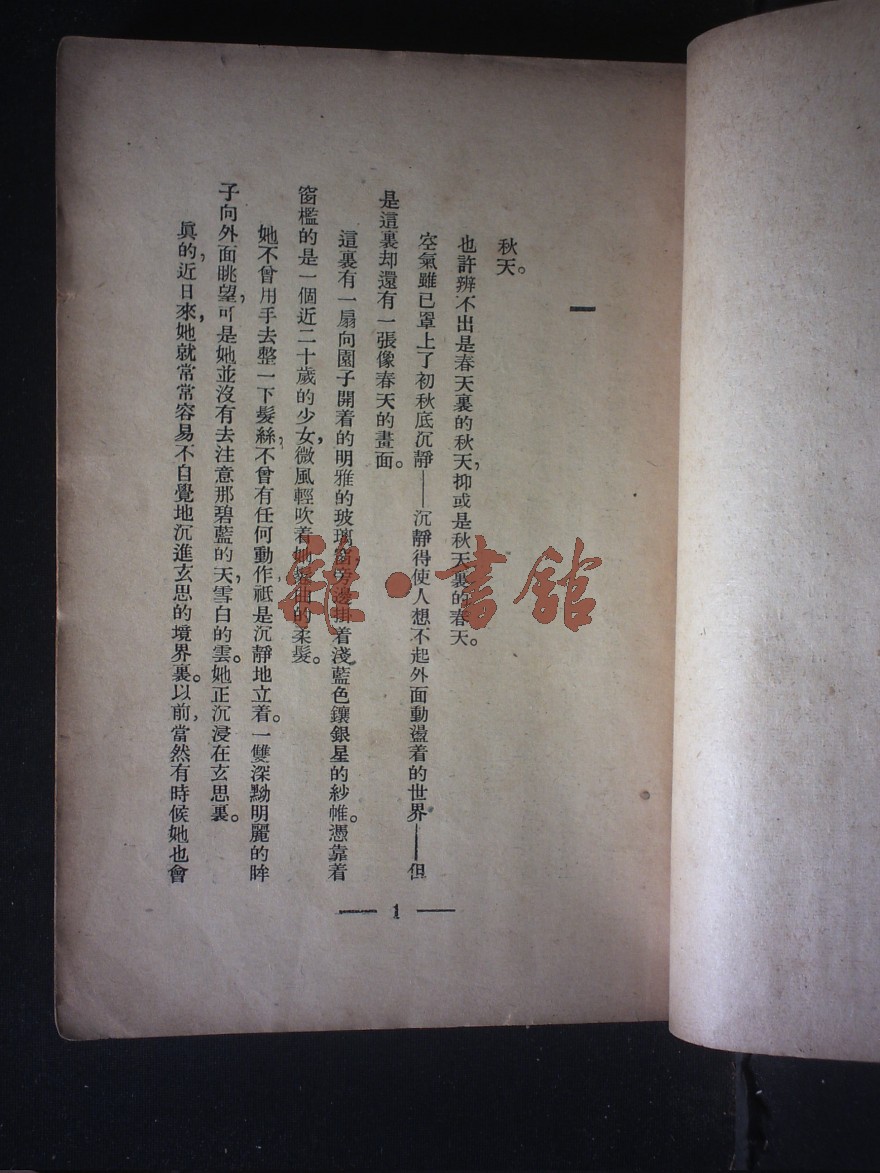 一
秋天。
也許辨不出是春天裏的秋天，抑或是秋天裏的春天。
空氣雖已罩上了初秋底沉靜——沉靜得使人想不起外面動盪着的世界——但
是這裏却還有一張像春天的畫面。
這裏有一扇向園子開着的明雅的玻璃窗，旁邊掛着淺藍色鑲銀星的紗帷。憑靠着
窗檻的是一個近二十歲的少女，微風輕吹着她鬈曲的柔髮。
她不曾用手去整一下髮絲，不曾有任何動作，祗是沉靜地立着。一雙深黝明麗的眸
子向外面眺望，可是她並沒有去注意那碧藍的天，雪白的雲。她正沉浸在玄思裏。
眞的，近日來，她就常常容易不自覺地沉進玄思的境界裏。以前，當然有時候她也會
— 1 —
雜·書館